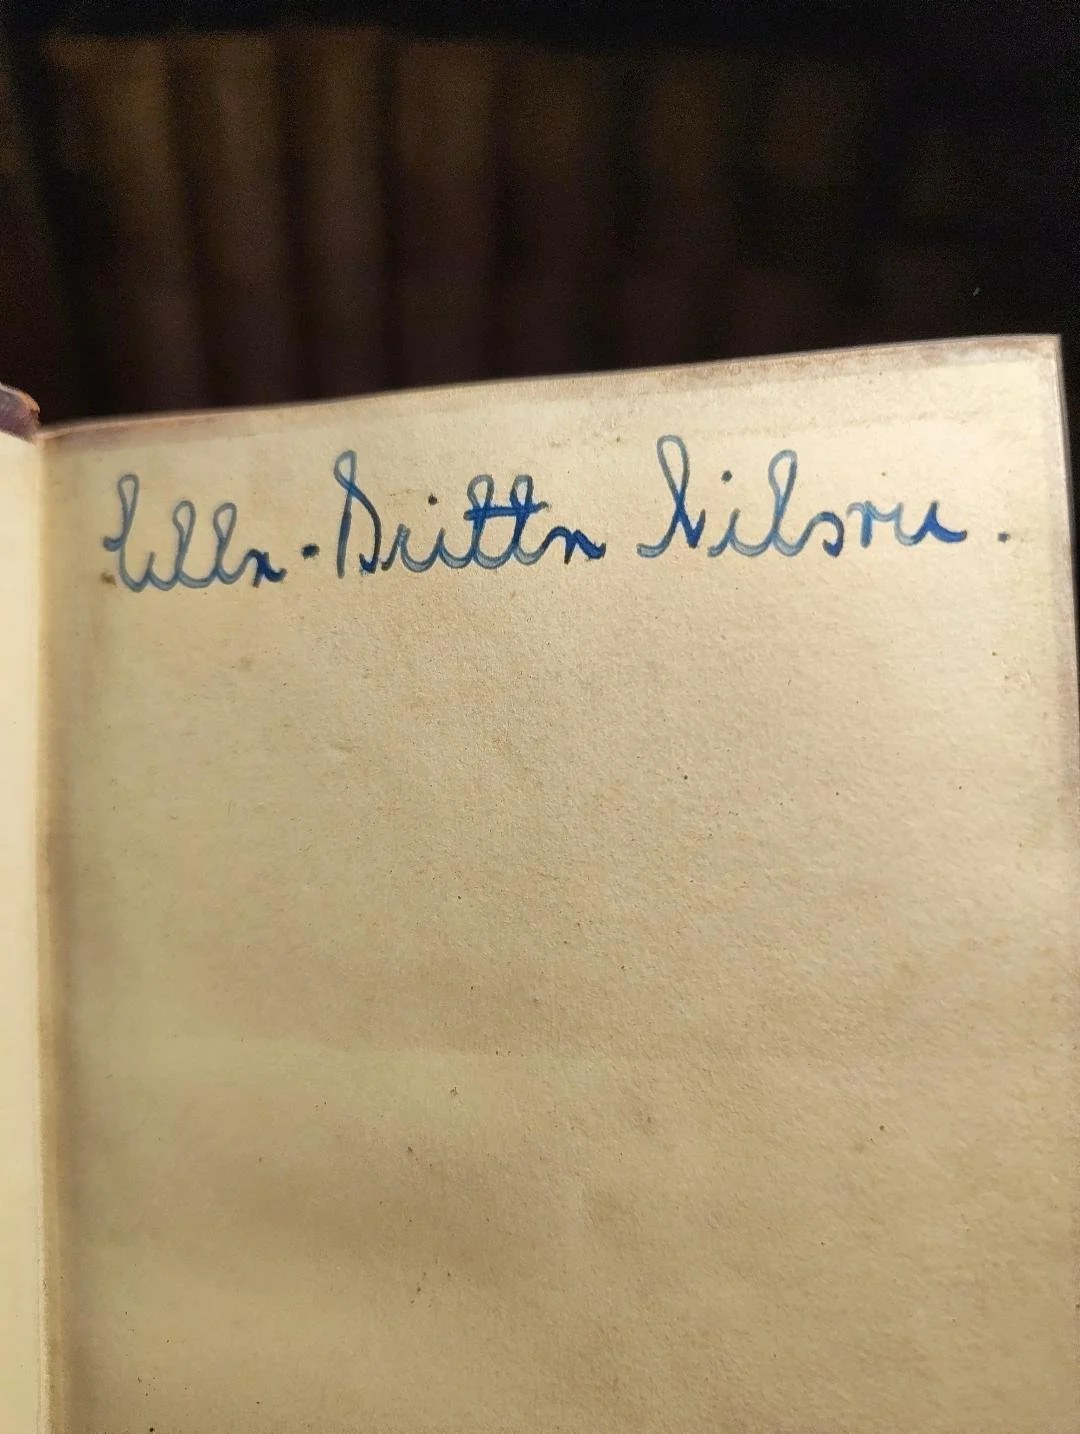 Ulla-Britta Nilson.